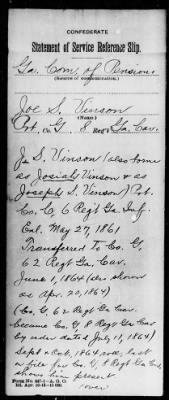 CONFEDERATE
Statement of Service Reference Slip.
Ga. Com. of Pensions
(Source of communication.)
Joe S. Vinson
(Name.)
Pvt. Co. G. 8 Reg't Ga. Cav.
J. S. Vinson (also borne
as Josiah Vinson & as
Joseph S. Vinson) Pvt.
Co. C, 6 Regt Ga. Inf.
Enl. May 27, 1861
Transferred to Co. G,
62 Regt Ga. Cav.
June 1, 1864 (also shown
as Apr. 20, 1864)
(Co. G, 62 Regt Ga Cav.
became Co. G 8 Regt Ga Cav
by order dated July 11, 1864)
Sept & Oct, 1864, roll, last
on file for Co. G, 8 Regt Ga Cav.
shows him present
over